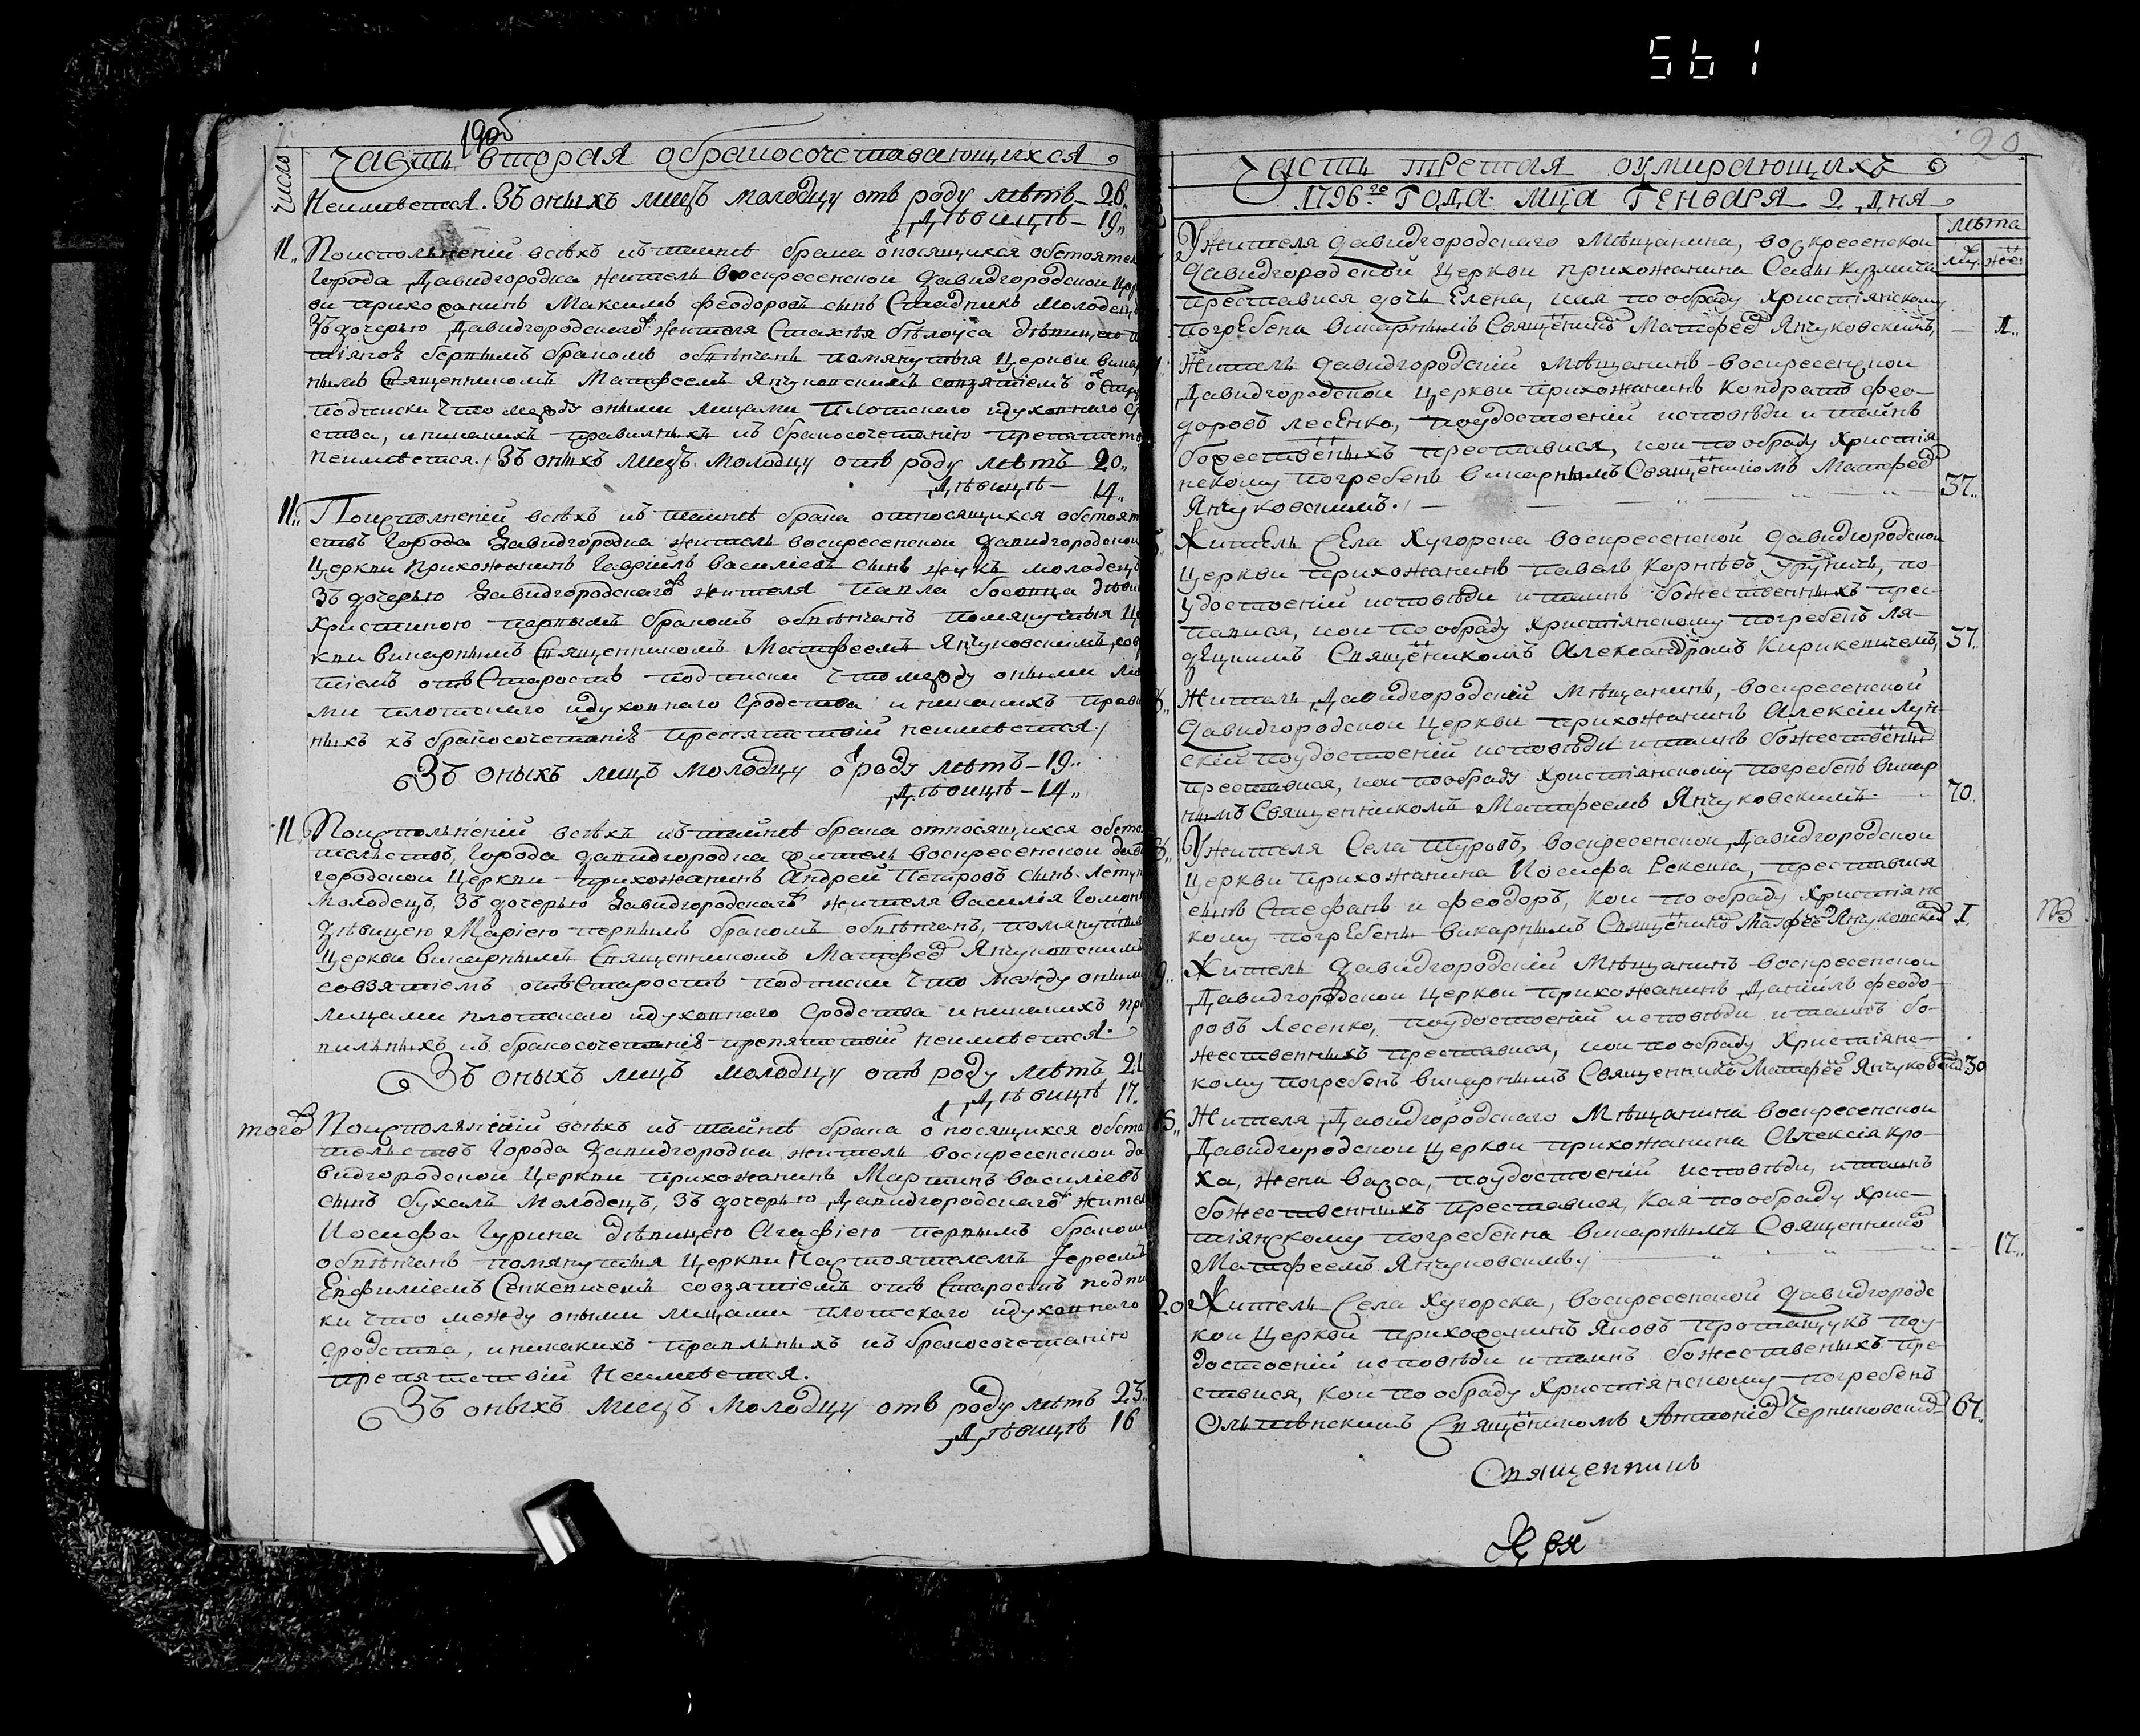 561
19об
Число
Часть вторая обракосочетавающихся
Неимѣется. Зъ оныхъ лицъ молодцу отъ роду лѣтъ – 26„
Дѣвицѣ – 19„
11„ Поисполненіи всѣхъ къ таинѣ брака относящихся обстоятел
Города Давидгородка житель Воскресенской Давидгородской Цер
ви прихожанинъ Максимъ Феодоровъ сынъ Стадникъ молодецъ
Зъ дочерью Давидгородскаго жителя Стахѣя Бѣлоуса дѣвицею
первымъ бракомъ обвѣнчанъ помянутыя Церкви викар
нымъ Священникомъ Матфеемъ Янчуковскимъ созятіемъ о Стар
подписки что между оными лицами плотскаго идуховнаго ср
ства, иникакихъ правилныхъ къ бракосочетанію препятств
неимѣется. Зъ оныхъ лицъ молодцу отъ роду лѣтъ 20„
Дѣвицѣ – 14„
11„ Поисполненіи всѣхъ къ таинѣ брака относящихся обстоят
ствъ Города Давидгородка житель Воскресенской Давидгородской
Церкви прихожанинъ Гавріилъ Василіевъ сынъ Жукъ молодецъ
Зъ дочерью Давидгородскаго жителя Павла дѣви
Христиною первымъ бракомъ обвѣнчанъ помянутыя Це
кви викарнымъ Священникомъ Матфеемъ Янчуковскимъ, соз
тіемъ отъ Старостъ подписки что между оными ли
ми плотскаго идуховнаго сродства иникакихъ прави
ныхъ къ бракосочетанію препятствій неимѣется.
Зъ оныхъ лицъ молодцу о роду лѣтъ – 19„
Дѣвицѣ – 14„
11„ Поисполненіи всѣхъ къ таинѣ брака относящихся обсто
телствъ, Города Давидгородка житель Воскресенской Дави
городской Церкви прихожанинъ Андрей Петровъ сынъ
Молодецъ, Зъ дочерью Давидгородскаго жителя Василія
дѣвицею Маріею первымъ бракомъ обвѣнчанъ, помянутыя
Церкви викарнымъ Священникомъ Матфее Янчуковскимъ
совзятіемъ отъ Старостъ подписки что между оными
лицами плотскаго идуховнаго сродства иникакихъ пра
вильныхъ къ бракосочетанію препятствій неимѣется.
Зъ оныхъ лицъ молодцу отъ роду лѣтъ 21
Дѣвицѣ 17.
того Поисполненіи всѣхъ къ таинѣ брака о носящихся обсто
телствъ Города Давидгородка житель Воскресенской Да
видгородской Церкви прихожанинъ Мартинъ Василіевъ
сынъ Бухалъ молодецъ, Зъ дочерью Давидгородскаго жител
Иосифа Гурина дѣвицею Агафіею первымъ браком
обвѣнчанъ помянутыя Церкви Настоятелемъ Іереемъ
Евфиміемъ Сенкевичемъ совзятіемъ отъ Старостъ подпи
ки что между оными лицами плотскаго идуховнаго
сродства, иникакихъ правилныхъ къ бракосочетанію
препятствій Неимѣется.
Зъ оныхъ лицъ молодцу отъ роду лѣтъ 23„
Дѣвицѣ 16
20
Часть третая оумирающихъ
1796го Года Мца Генваря 2 дня
лѣта
му. же:
У жителя Давидгородскаго Мѣщанина, воскресенской
Давидгородской Церкви прихожанина Савы Кузмича
преставися дочь Елена, коя по обряду Христіянскому
погребена викарнымъ Священико Матфео Янчуковскимъ, – 1„
Житель Давидгородскій Мѣщанинъ Воскресенской
Давидгородской Церкви прихожанинъ Кондратъ Фео-
доровъ Лесенко, поудостоеніи исповѣди и таинъ
божественныхъ преставися, кои по обряду Христія
нскому погребенъ викарнымъ Священикомъ Матфео
Янчуковскимъ. 37„
Житель Села Хугорска воскресенской Давидгородской
Церкви прихожанинъ Павелъ Корнѣевъ, по-
удостоеніи исповѣди и таинъ божественныхъ прес-
тавися, кои по обряду Христіянскому погребенъ Ля-
децкимъ Священикомъ Александромъ Кирикевичемъ, 37„
Житель Давидгородскій Мѣщанинъ, воскресенской
Давидгородской Церкви прихожанинъ Алексіи Лун-
скій поудостоеніи исповѣди и таинъ божествены
преставися, кои по обряду Христіянскому погребенъ викар
нымъ Священникомъ Матфеемъ Янчуковскимъ. 70.
8„ У жителя Села Туровъ, Воскресенской Давидгородской
Церкви прихожанина Иосифа Рекеша, преставися
сынъ Стефанъ и Феодоръ, кои по обряду Христіянс
кому погребены викарнымъ Священико Матфее Янчуковски 1.
9„ Житель Давидгородскій Мѣщанинъ Воскресенской
Давидгородской Церкви прихожанинъ Даніилъ Феодо-
ровъ Лесенко, поудостоеніи исповѣди и таинъ бо-
жественныхъ преставися, кои по обряду Христіянс-
кому погребенъ викарнымъ Священнико Матфее Янчуковски 30
15„ Жителя Давидгородскаго Мѣщанина Воскресенской
Давидгородской Церкви прихожанина Алексія Кро-
ха, жена Васса, поудостоеніи исповѣди, и таинъ
божественныхъ преставися, кая по обряду Хрис-
тіянскому погребенна викарнымъ Священнико
Матфеемъ Янчуковскимъ. 17„
20 Житель Села Хугорска, воскресенской Давидгородс
кои Церкви прихожанинъ Яковъ Протащукъ поу-
достоеніи исповѣди и таинъ божественыхъ пре-
ставися, кои по обряду Христіянскому погребенъ
Ольшевскимъ Священикомъ Антоніо Черниковски 67„
Священникъ